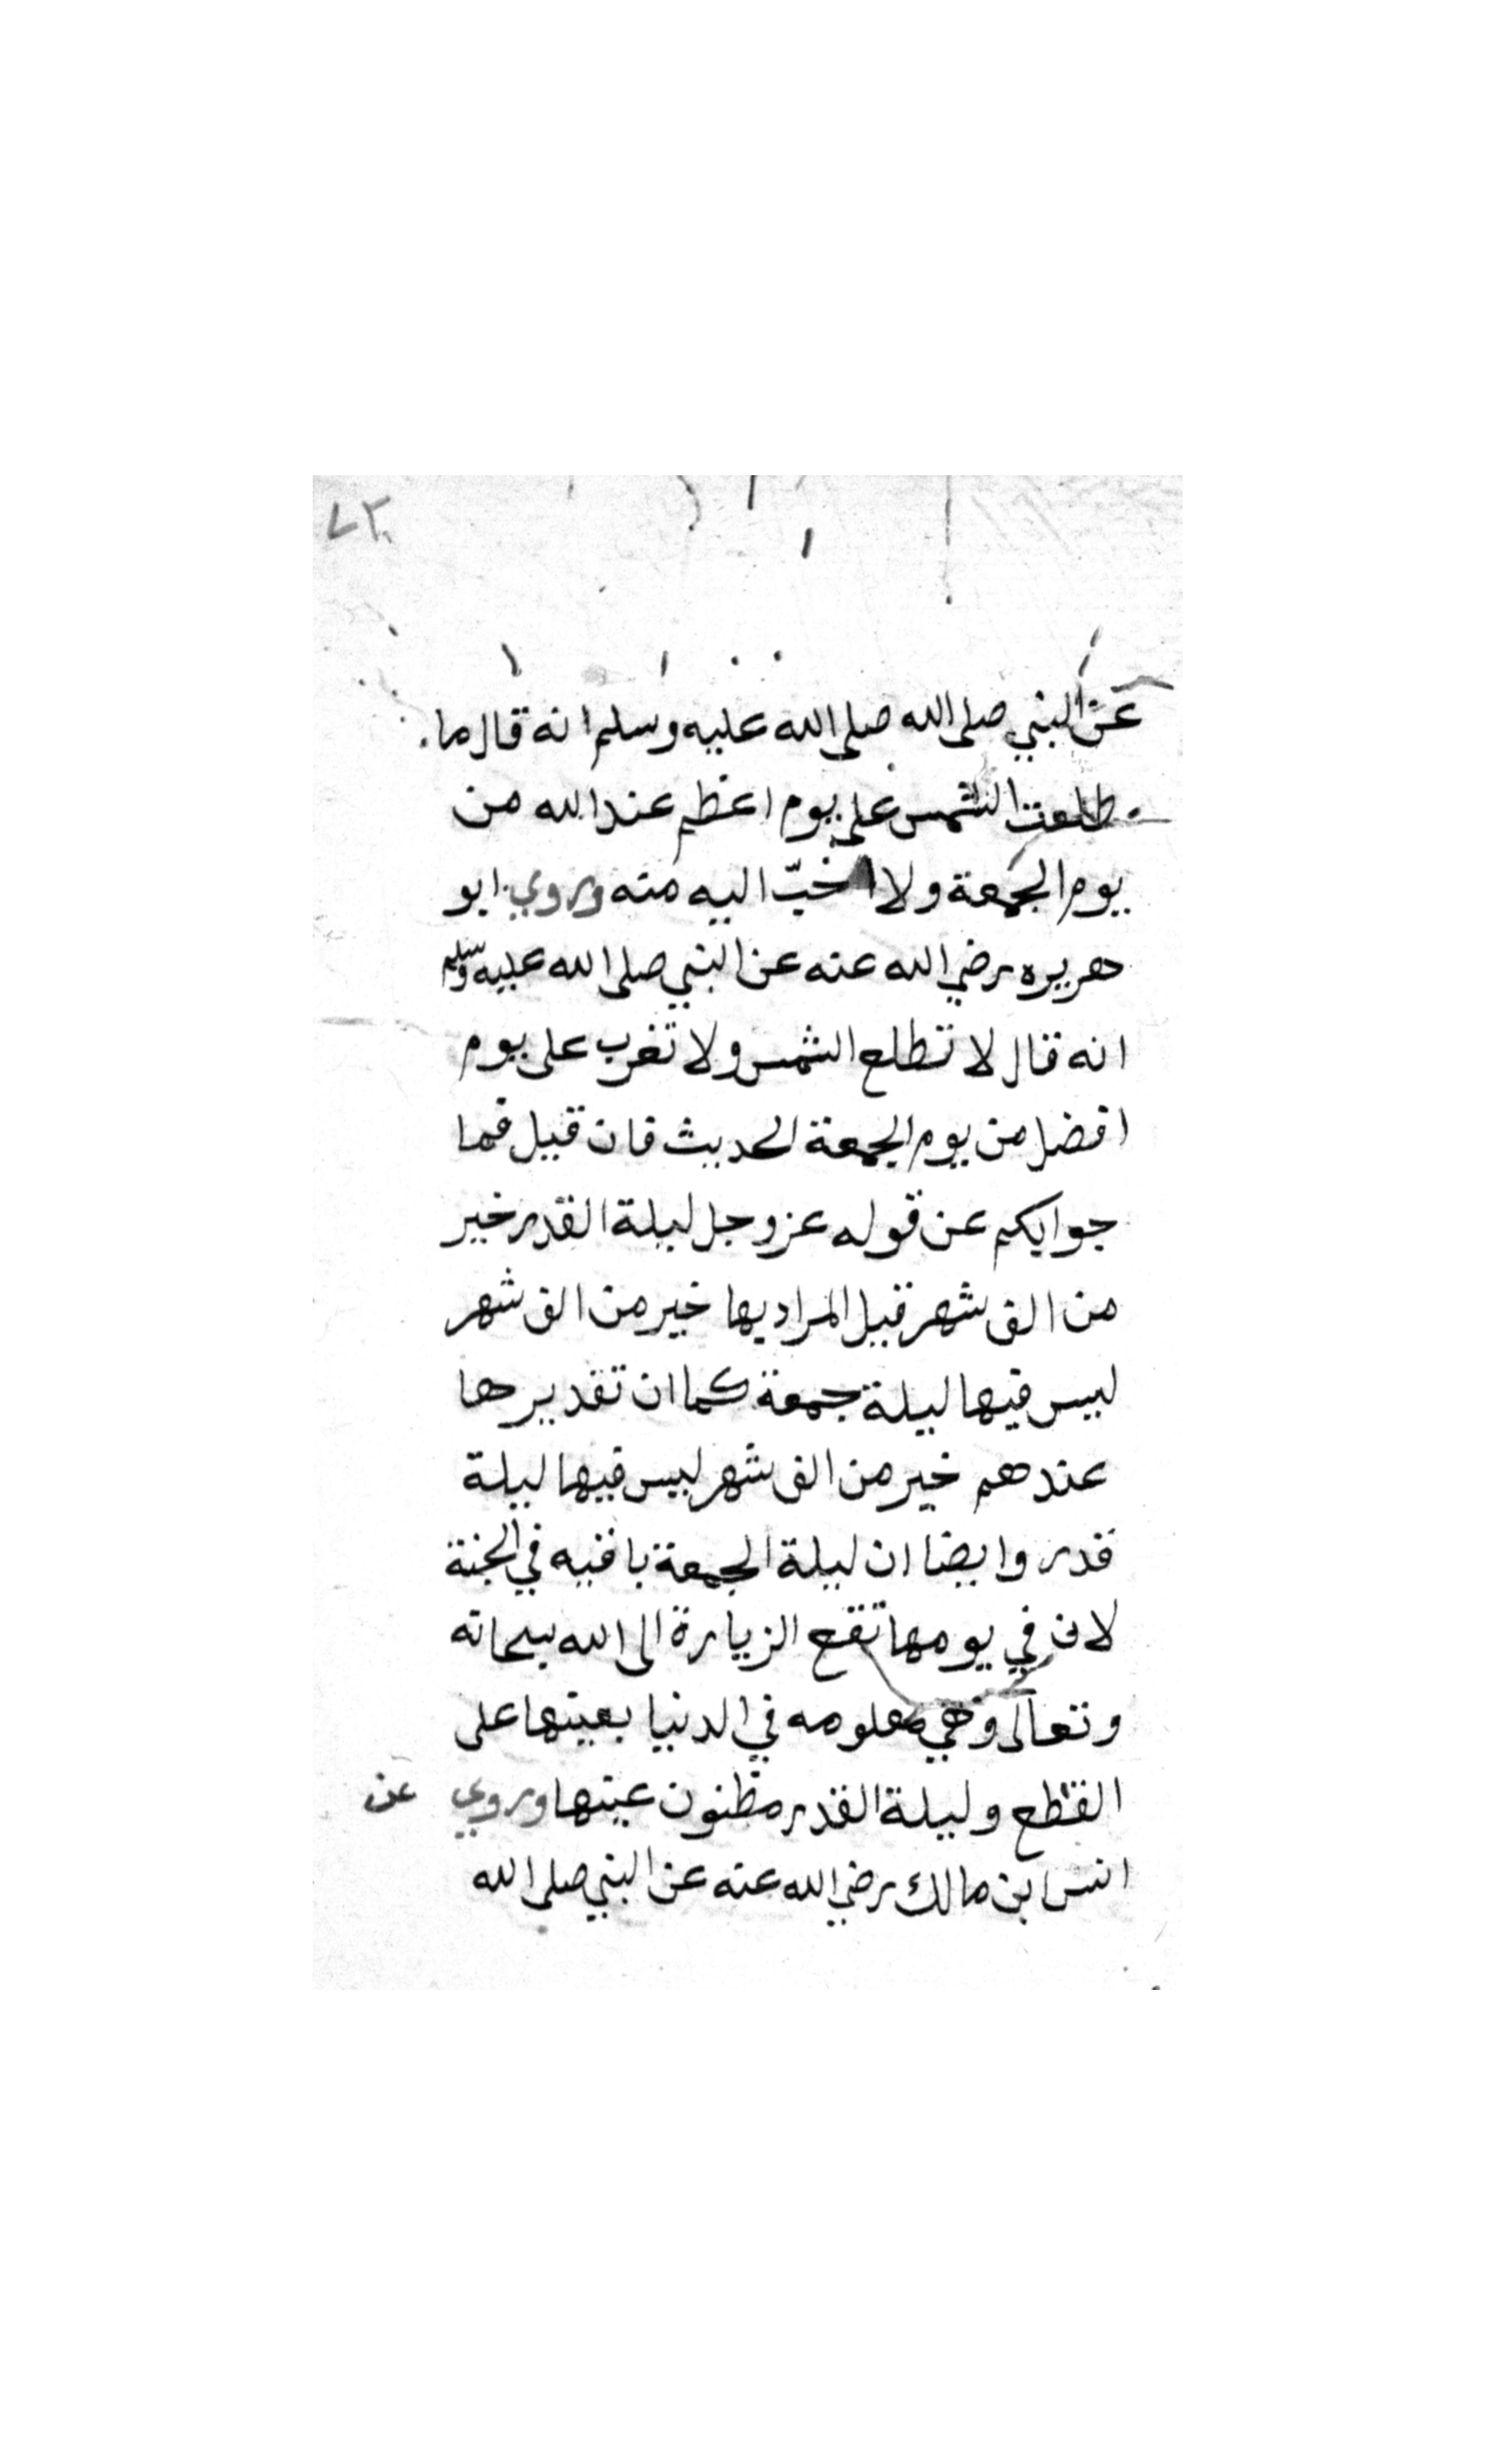 ٧٣
عن النبي صلى الله صلى الله عليه وسلم انه قال ما
طلعت الشمس على يوم اعظم عند الله من
يوم الجمعة ولا احبّ اليه منه وروي ابو
هريره رضي الله عنه عن النبي صلى الله عليه وسلم
انه قال لا تطلع الشمس ولا تغرب على يوم
افضل من يوم الجمعة الحديث فان قيل فما
جوابكم عن قوله عز وجل ليلة القدر خير
من الف شهر قيل المراد بها خير من الف شهر
ليس فيها ليلة جمعة كما ان تقديرها
عندهم خير من الف شهر ليس فيها ليلة
قدر وايضا ان ليلة الجمعة باقيه في الجنة
لان في يومها تقع الزيارة الى الله سبحانه
وتعالى وهي معلومه في الدنيا بعينها على
القطع وليلة القدر مظنون عينها وروي عن
انس بن مالك رضي الله عنه عن النبي صلى الله